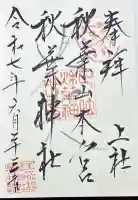 奉拝
上社
秋葉山本宮
秋葉神社
令和七年六月二十二日